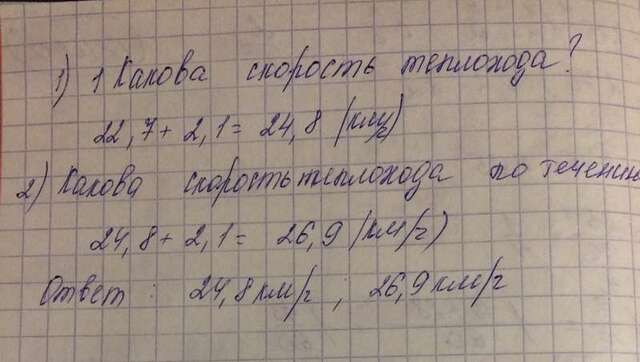 1) 1 Какова скорость теплохода?
22,7 + 2,1 = 24,8 (км/ч)
2) Какова скорость теплохода по течению
24,8 + 2,1 = 26,9 (км/ч)
Ответ : 24,8 км/ч ; 26,9 км/ч